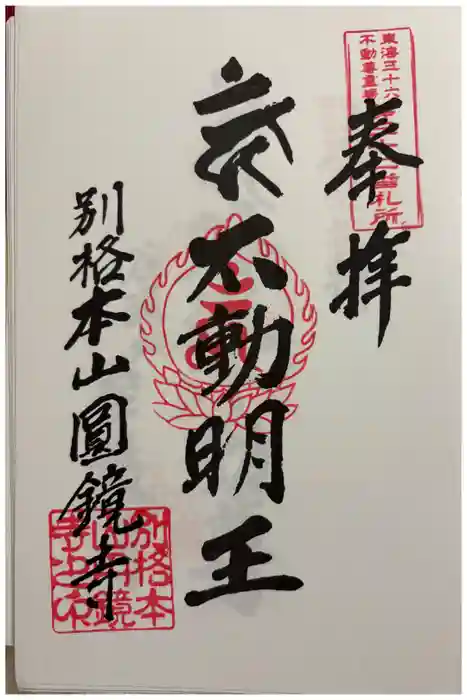 東海三十六
不動尊霊場
番札所
奉拝
不動明王
別格本山圓鏡寺
別格本